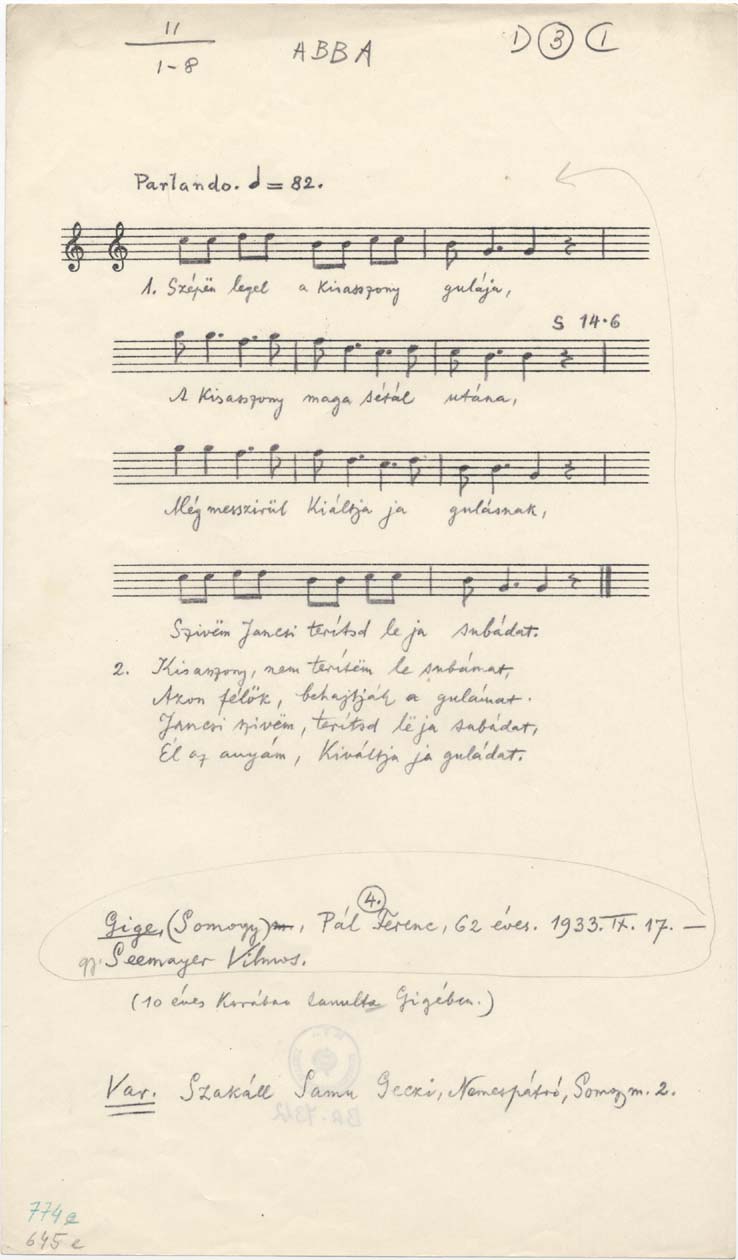 11
1-8
ABBA
D 3 1
Parlando. = 82.
1. Szépën legel a kisasszony gulája,
S 14.6
A kisasszony maga sétál utána,
Még messzirül kiáltja ja gulásnak,
Szivëm Jancsi terítsd le ja subádat.
2. Kisasszony, nem terítëm le subámat,
Azon félök, behajtják a gulámat.
Jancsi szivëm, terítsd lë ja subádat,
Él az anyám, kiváltja ja guládat.
4.
Gige, (Somogy) m, Pál Ferenc, 62 éves. 1933. IX. 17. —
gy. Seemayer Vilmos.
(10 éves korában tanulta Gigében.)
Var. Szakáll Samu Geczi, Nemespátró, Somogy m. 2.
774e
645e